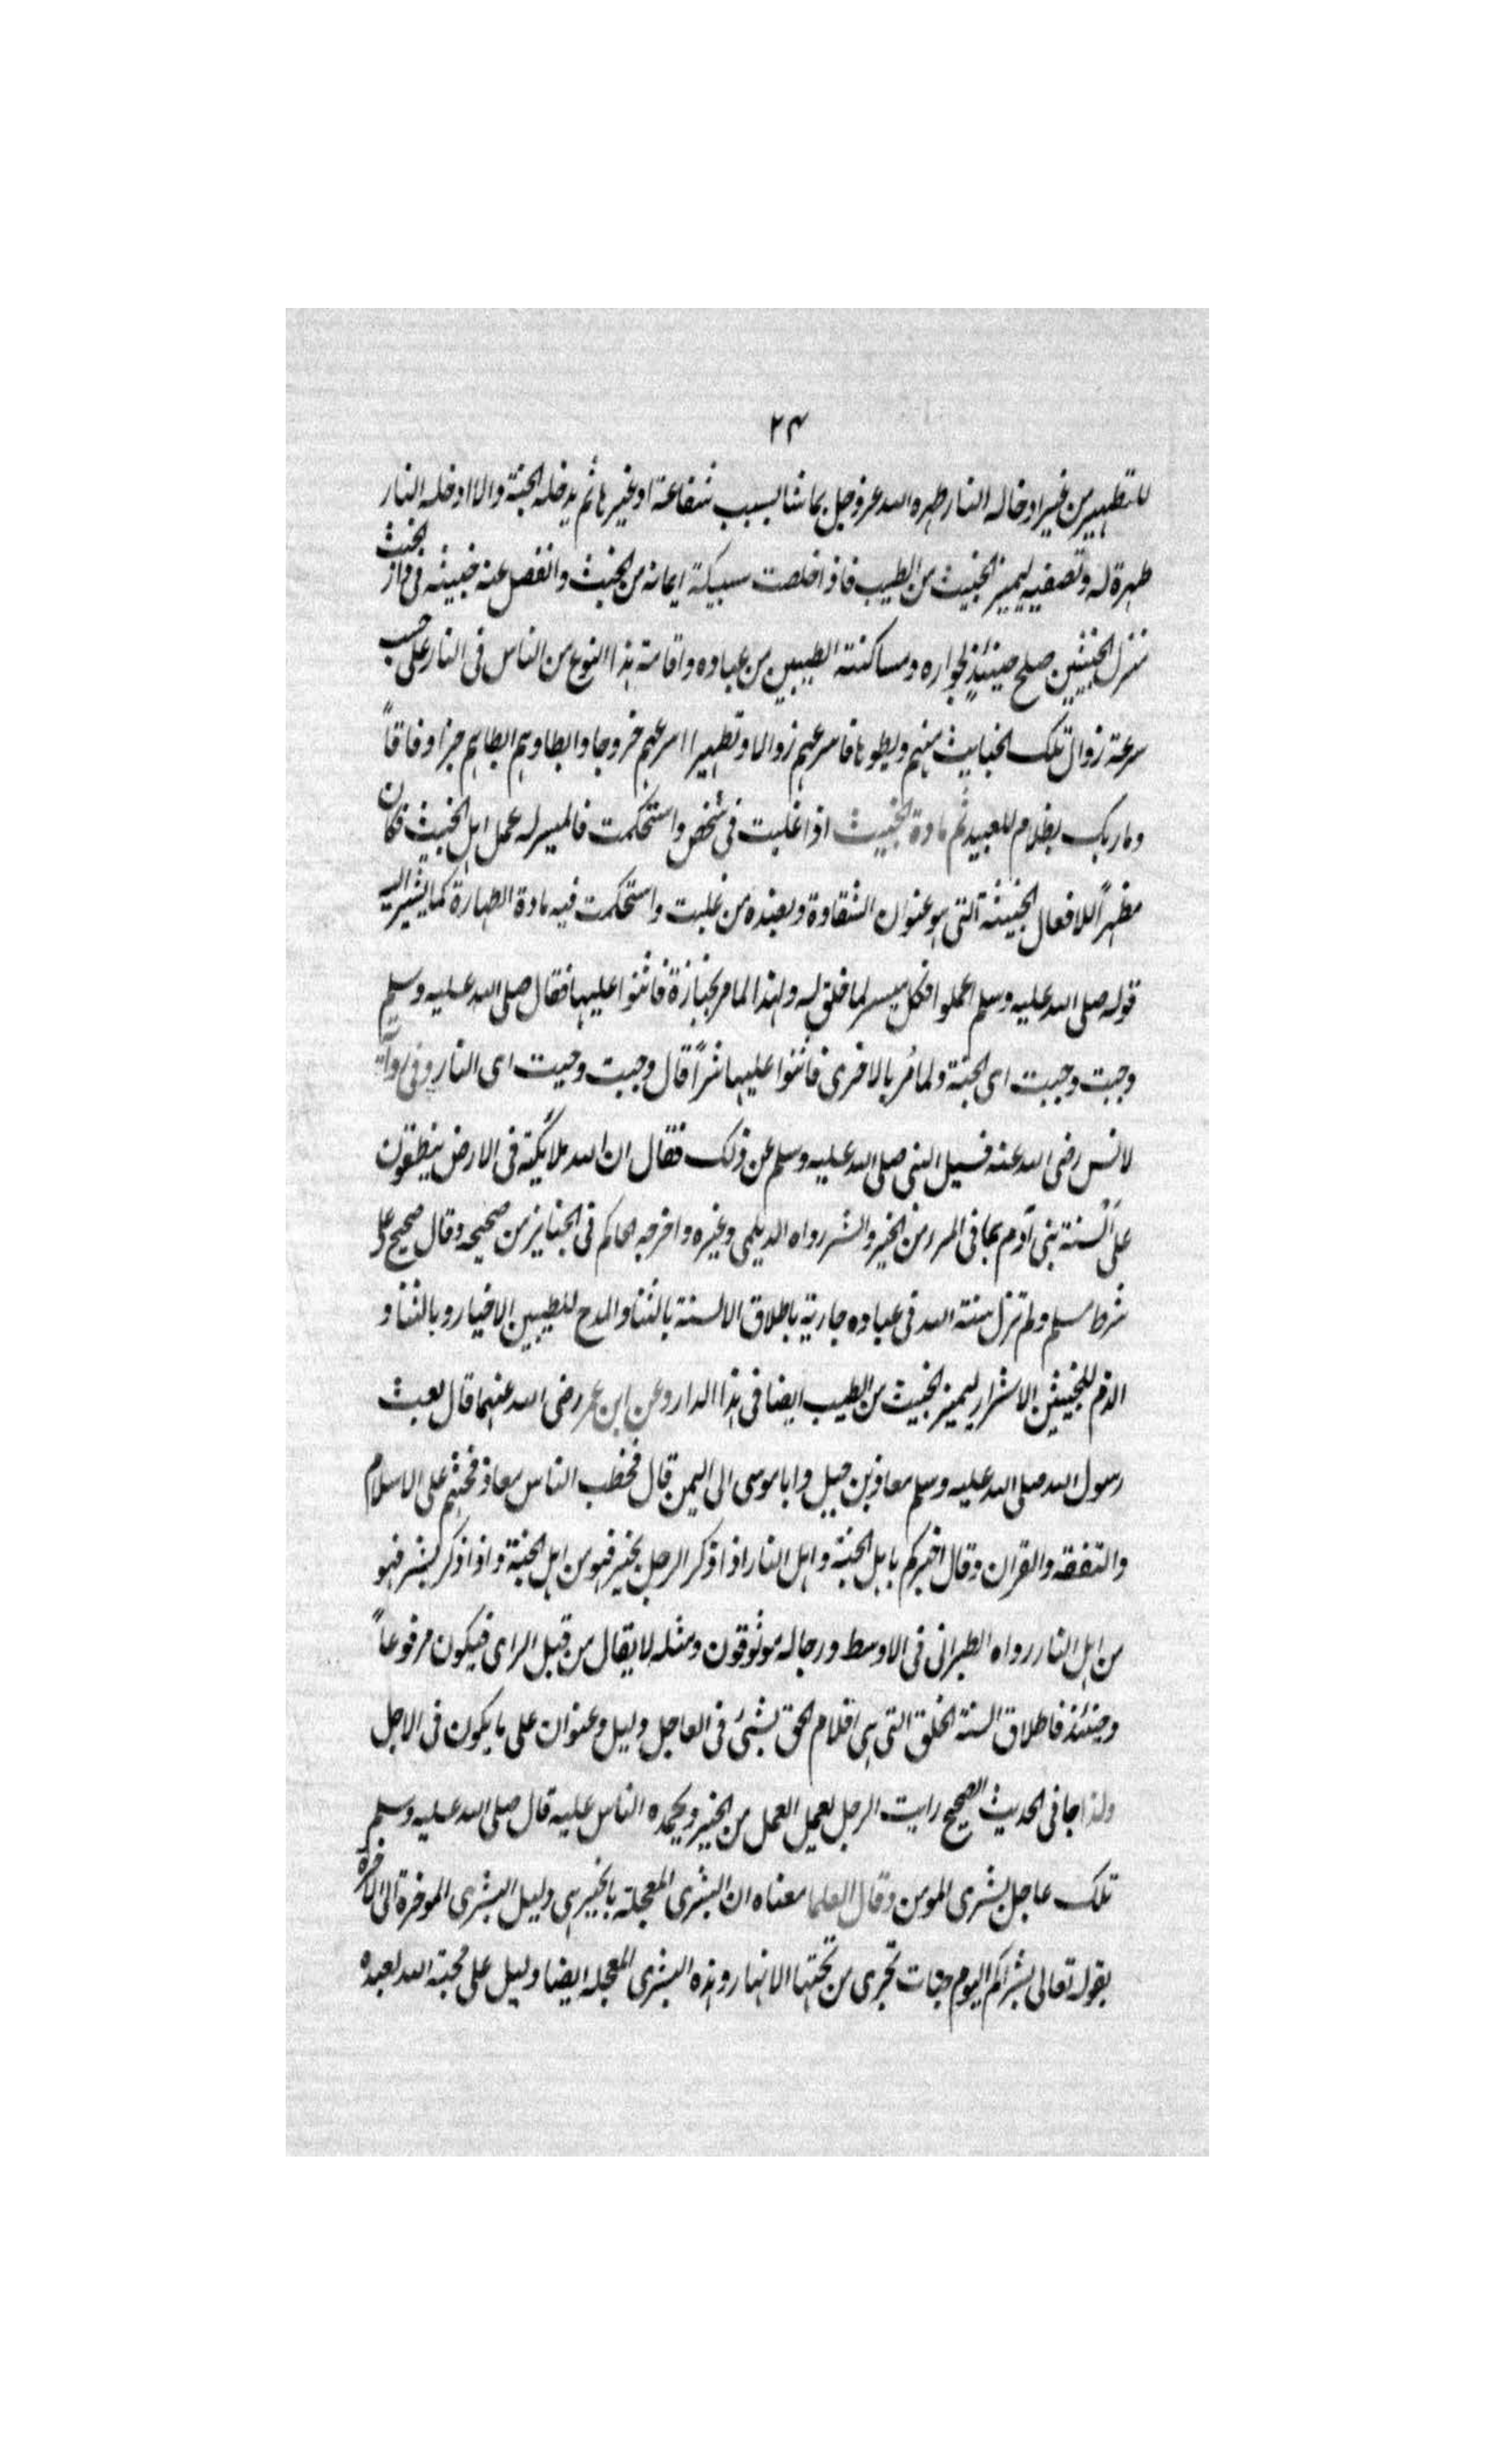 ٢٣
للتطهير من غير ادخاله النار طهره الله عز وجل بما شا بسبب شفاعة او غيرها ثم يدخله الجنة والا ادخله النار
طهرة له وتصفيه ليميز الخبيث من الطيب فاذا خلصت سبيكة ايمانه من الخبث وانفصل عنه خبيثه فى دار الخبث
منزل الخبيثين صلح حينئذٍ لجواره ومساكنته الطيبين من عباده واقامة هذا النوع من الناس فى النار على حسب
سرعة زوال تلك الخبايث منهم وبطوها فاسرعهم زوالا وتطهيرا اسرعهم خروجا وابطاوهم ابطاهم جزا وفاقاً
وما ربك بظلام للعبيد ثم مادة الخبيث اذا غلبت فى شخص واستحكمت فالميسر له عمل اهل الخبيث فكان
مظهراً للافعال الخبيثه التى هو عنوان الشقاوة وبعنده من غلبت واستحكمت فيه مادة الطهارة كما يشير اليه
قوله صلى الله عليه وسلم اعملوا فكل ميسر لما خلق له ولهذا لما مر بجنازة فاثنوا عليها فقال صلى الله عليه وسلم
وجبت وجبت اى الجنة ولما مُر بالاخرى فاثنوا عليها شراً قال وجبت وجبت اى النار وفى رواية
لانس رضى الله عنه فسيل النبى صلى الله عليه وسلم عن ذلك فقال ان لله ملايكة فى الارض ينطقون
على السنة بنى آدم بما فى المرء من الخير والشر رواه الديلمى وغيره واخرجه الحاكم فى الجنايز من صحيحه وقال صحيح على
شرط مسلم ولم تزل سنة الله فى عباده جارية باطلاق الالسنة بالثنا والمدح للطيبين الاخيار وبالثنا و
الذم للخبيثين الاشرار ليميز الخبيث من الطيب ايضا فى هذا الدار وعن ابن عمر رضى الله عنهما قال بعث
رسول الله صلى الله عليه وسلم معاذ بن جبل وابا موسى الى اليمن قال فخطب الناس معاذ فحثهم على الاسلام
والتفقه والقران وقال اخبركم باهل الجنة واهل النار اذا ذكر الرجل بخير فهو من اهل الجنة واذا ذكر بشر فهو
من اهل النار رواه الطبرانى فى الاوسط ورجاله موثوقون ومثله لا يقال من قبل الراى فيكون مرفوعاً
وحينئذ فاطلاق السنة الخلق التى هى اقلام الحق بشئ فى العاجل دليل وعنوان على ما يكون فى الاجل
ولذا جا فى الحديث الصحيح رايت الرجل يعمل العمل من الخير ويحمده الناس عليه قال صلى الله عليه وسلم
تلك عاجل بشرى المومن وقال العلما معناه ان البشرى المعجلة بالخير هى دليل البشرى الموخرة الى الاخرة
بقوله تعالى بشراكم اليوم جنات تجرى من تحتها الانهار وهذه البشرى المعجله ايضا دليل على محبة الله لعبده